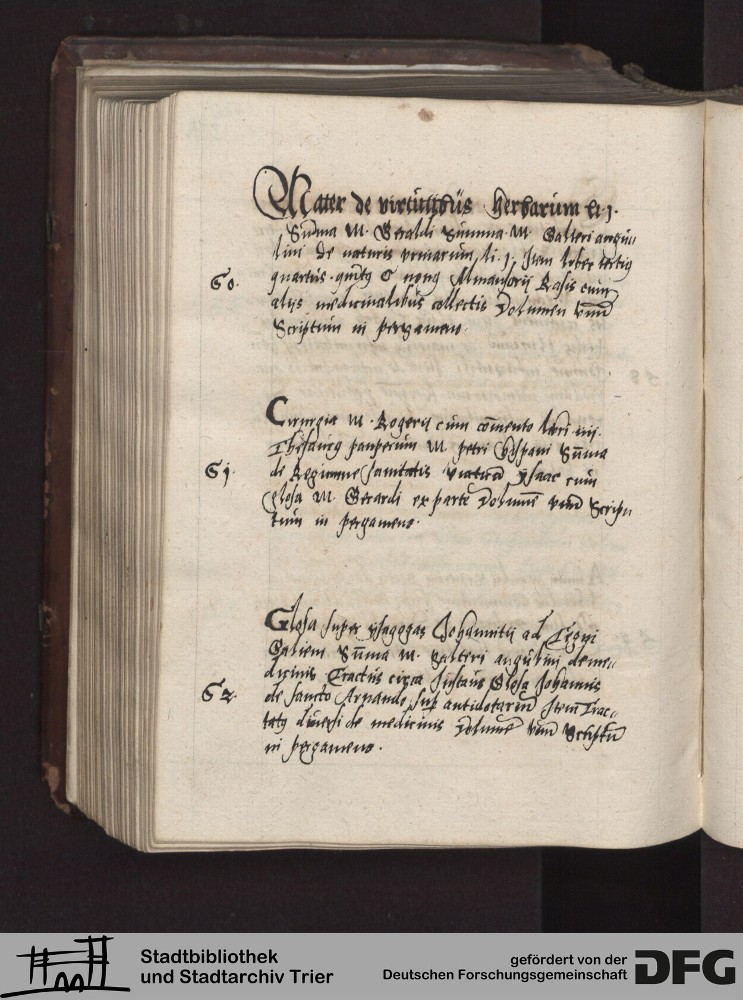 Mater de virtutibus herbarum li. j.
Summa M. Geraldi Summa. M. Galteri augu//
lini de naturis urinarum, li. j. Item liber tertig
60. quartus. quitg & nong Almansorij Rasis cum
alijs medicinalibus collectis Volumen unū
Scriptum in pergameno.
Cirurgia M. Rogerij cum cōmento libri iiij.
Thesaurg pauperum M. petri hyspani Sūma
61. de Regimine sanitatis viaticū ysaac cum
glosa M. Gerardi ex parte Volumē unū Scrip//
tum in pergameno.
Glosa super ysagogas Johannitij ad Tegni
Galieni Sūma M. Galteri augulini de me//
dicinis Tractus circa Instans Glosa Johannis
62. de sancto Amando sup antidotariū Item Trac//
tatg diversi de medicinis Volumē unū Scriptū
in pergameno.
Stadtbibliothek
und Stadtarchiv Trier
gefördert von der
Deutschen Forschungsgemeinschaft
DFG